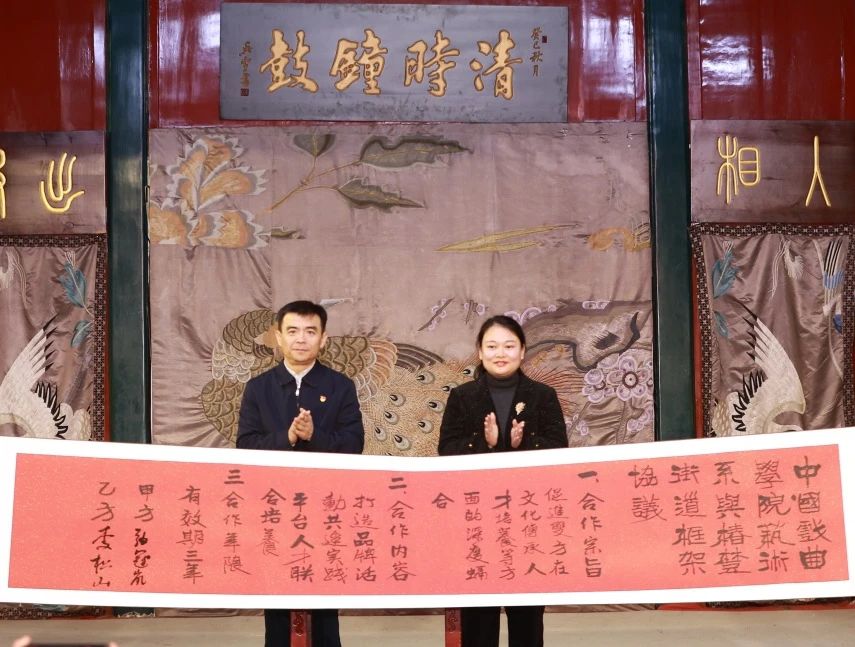 癸巳秋月
清時鐘鼓
人相
中國戲曲
學院藝術
系與椿
街道框架
協議
一、合作宗旨
促進雙方在
文化傳承人
才培養等方
面的深度融
合
二、合作內容
打造品牌活
動共建實踐
平台人才聯
合培養
三 合作年限
有效期三年
甲方
乙方